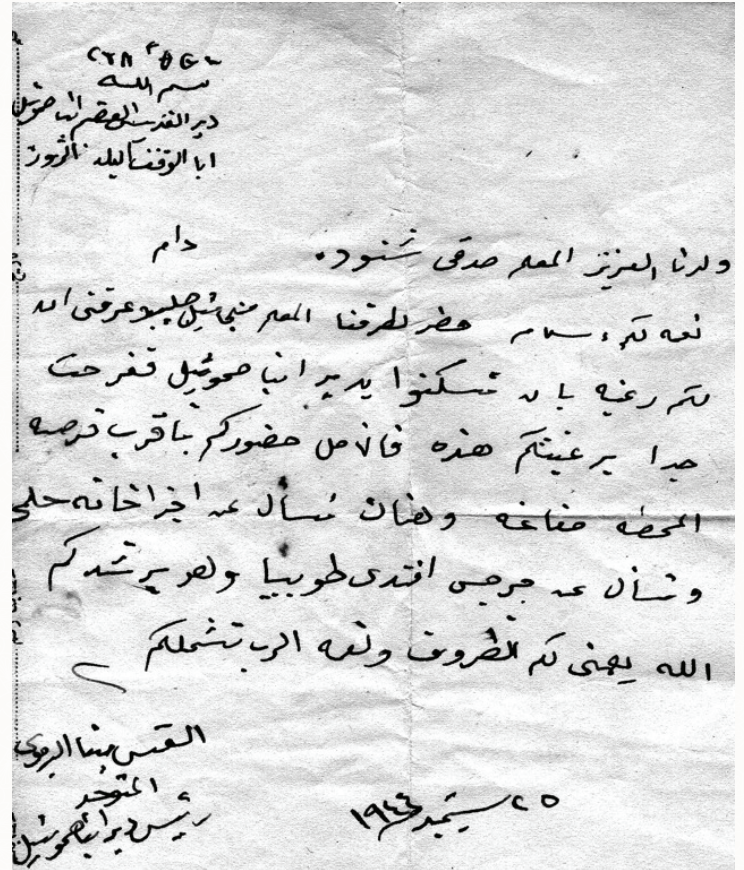 بسم الله
دير القديس العظيم انبا صموئيل
ولدنا العزيز المعلم صدقى شنوده. دام
نعمه لكم وسلام حضر لطرفنا المعلم ميخائيل وعرفنى ان
لكم رغبه بان تسكنوا بدير انبا صموئيل ففرحت
جدا برغبتكم هذه فالامل حضوركم باقرب فرصه
المحطه مغاغه وهناك تسأل عن اجزاخانه حلمى
وتسأل عن جرجس افندى طوبيا وهو يرشدكم
الله يهيئ لكم الظروف ونعمه الرب تشملكم
القس مينا البرموسى
المتوحد
رئيس دير انبا صموئيل
٢٥ سبتمبر ١٩٤٤